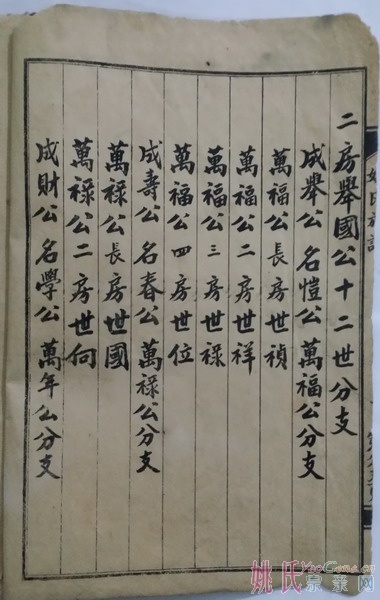 二房舉國公十二世分支
成舉公名愷公萬福公分支
萬福公長房世禎
萬福公二房世祥
萬福公三房世祿
萬福公四房世位
成壽公名春公萬祿公分支
萬祿公長房世國
萬祿公二房世向
成財公名學公萬年公分支
姚氏宗亲网
YaoGens.cn